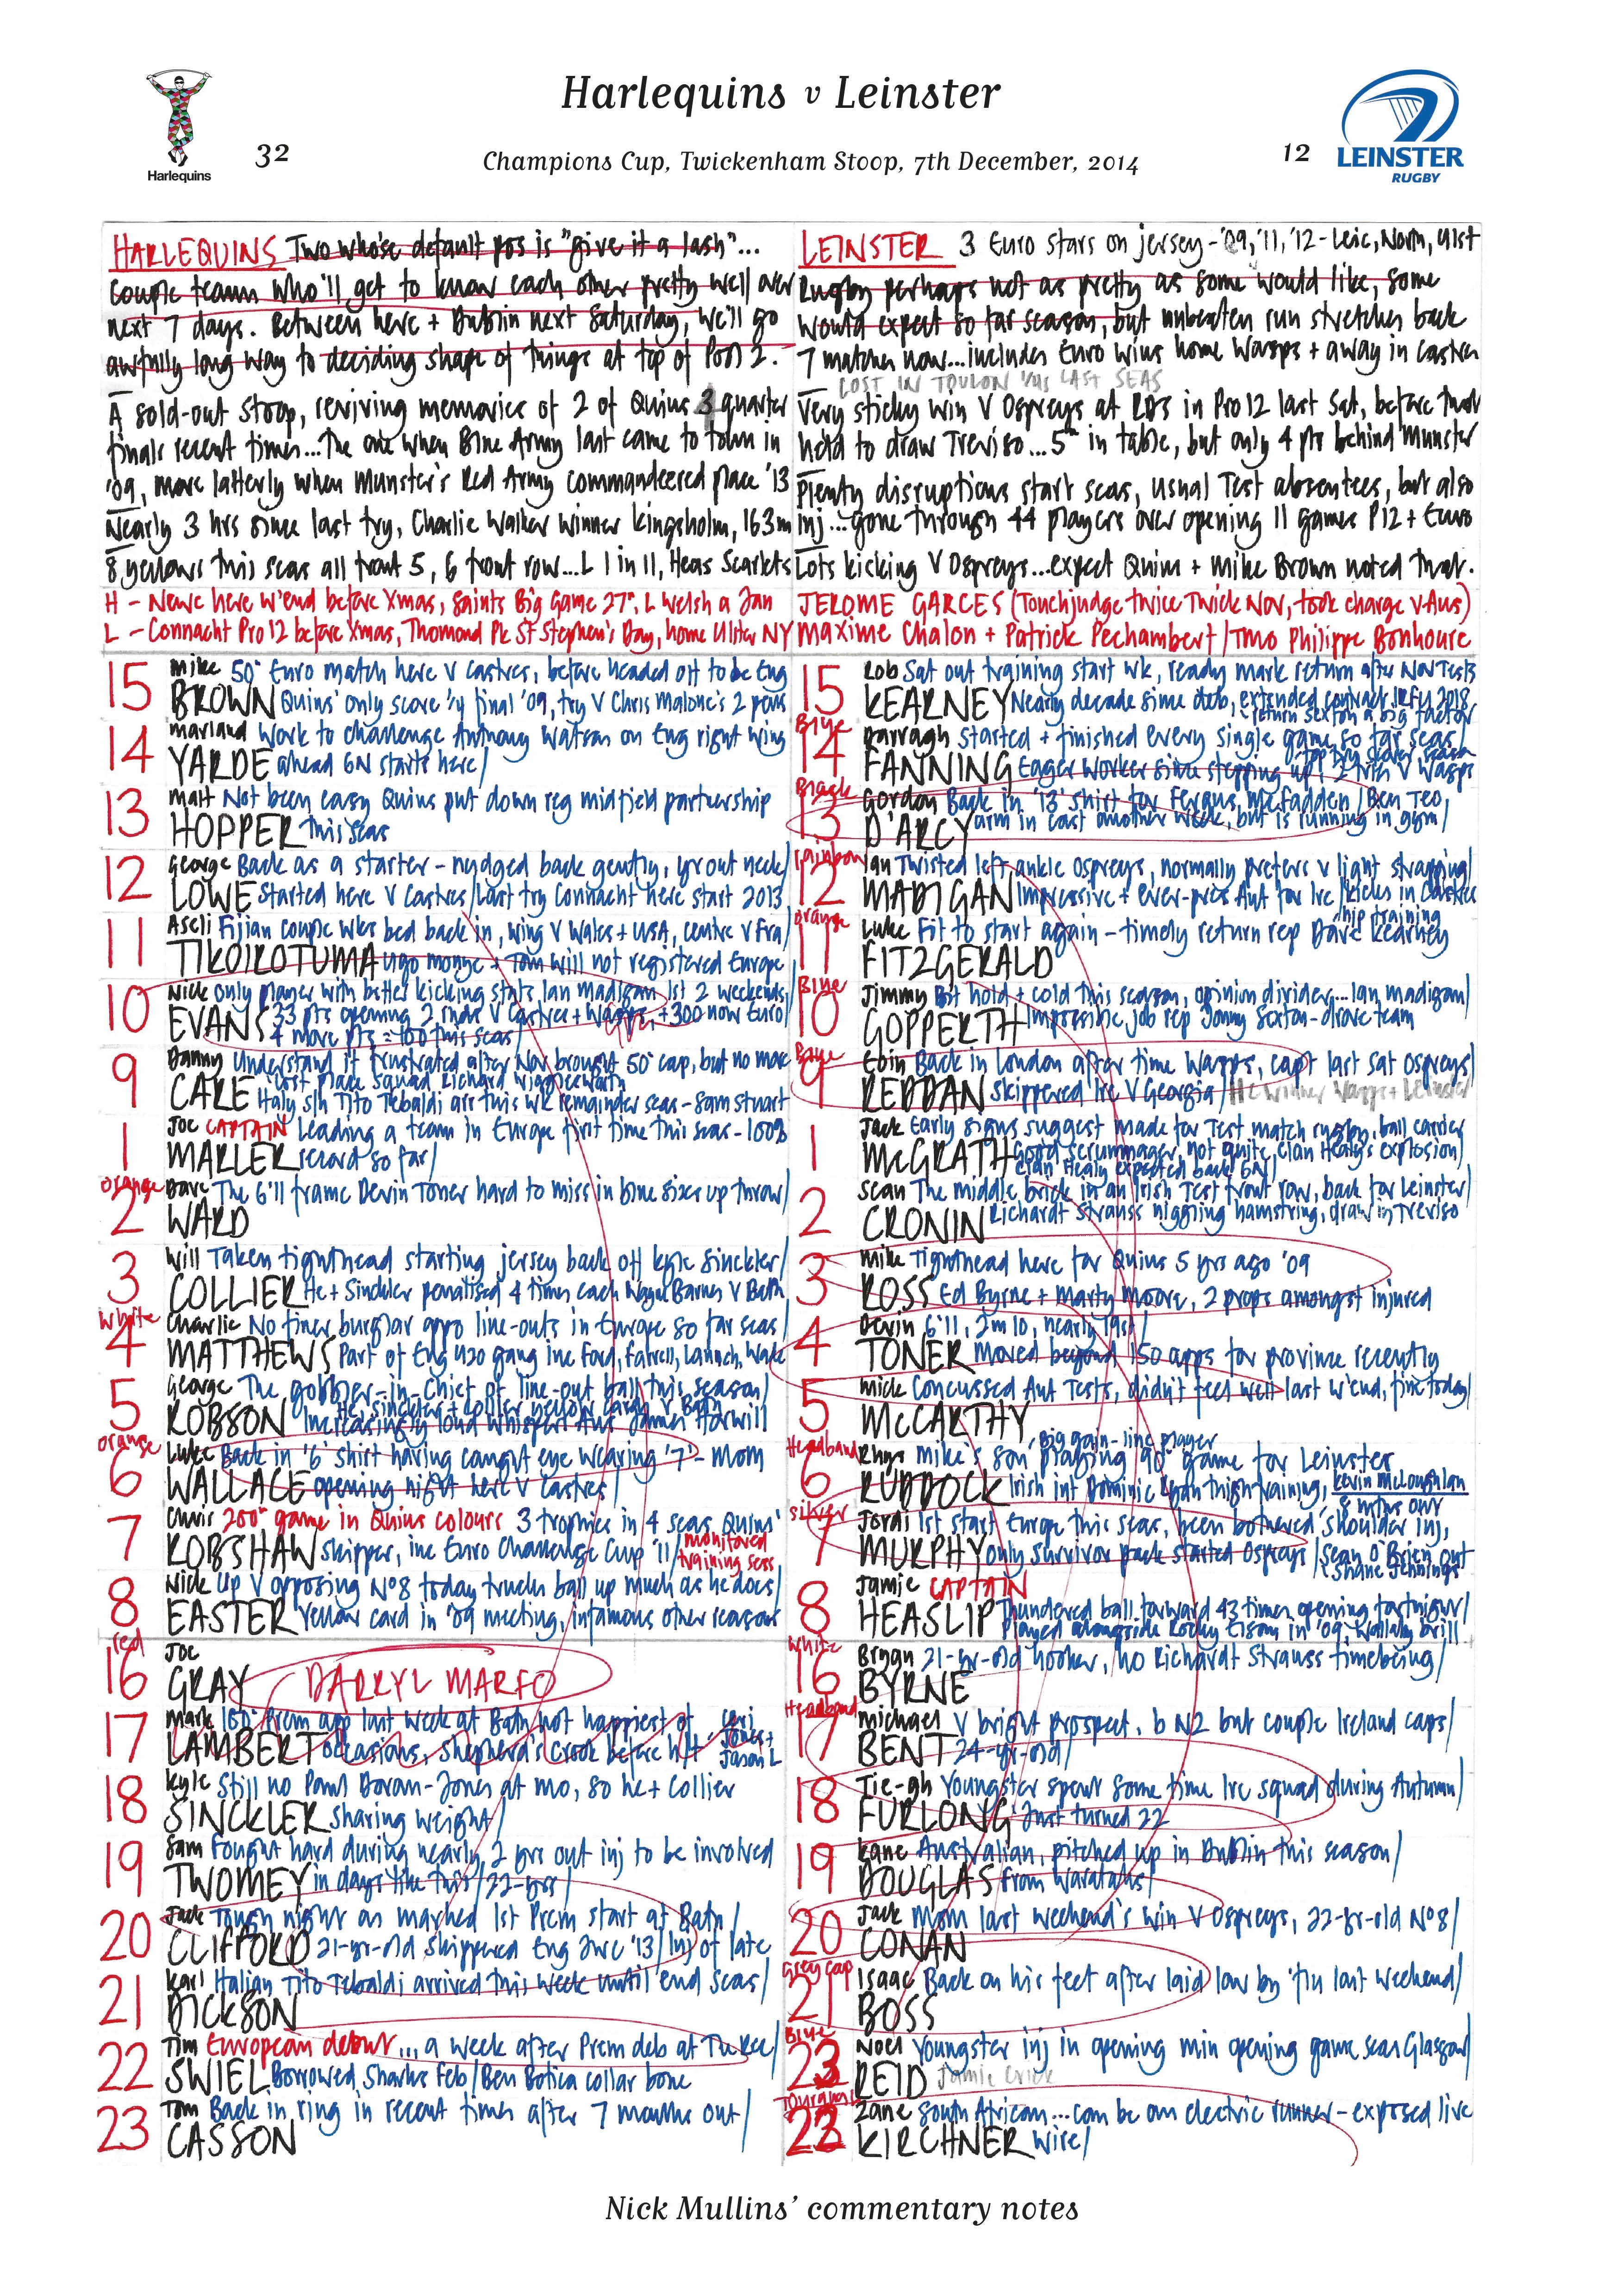 Harlequins v Leinster
Harlequins
32
Champions Cup, Twickenham Stoop, 7th December, 2014
12
LEINSTER
RUGBY
HARLEQUINS Two whose default pos is "give it a lash"...
couple teams who'll get to know each other pretty well over
next 7 days. Between here + Dublin next Saturday, we'll go
awfully long way to deciding shape of things at top of Pool 2.
A sold-out Stoop, reviving memories of 2 of Quins quarter
finals recent times...The one when Blue Army last came to town in
'09, more latterly when Munster's Red Army commandeered place '13
Nearly 3 hrs since last try, Charlie Walker winner Kingsholm, 163m
8 yellows this seas all front 5, 6 front row...L 1 in 11, Heas Scarlets
H - Newc here w'end before Xmas, Saints Big Game 27th, L Welsh a Jan
L - Connacht Pro12 before Xmas, Thomond Pk St Stephen's Day, home Ulster NY
LEINSTER 3 Euro stars on jersey - '09, '11, '12 - Leic, Norn, Ulst
Rugby perhaps not as pretty as some would like, some
would expect so far season, but unbeaten run stretches back
7 matches now...includes Euro wins home Wasps + away in Castres
LOST IN TOULON 1/4s LAST SEAS
Very sticky win V Ospreys at RDS in Pro12 last Sat, before that
held to draw Treviso...5th in table, but only 4 pts behind Munster
Plenty disruptions start seas, usual Test absentees, but also
inj...gone through 44 players over opening 11 games P12 + Euro
Lots kicking V Ospreys...expect Quins + Mike Brown noted that.
JEROME GARCES (Touchjudge twice Twick Nov, took charge v Aus)
Maxime Chalon + Patrick Pechambert / TMO Philippe Bonhoure
15 Mike 50th Euro match here V Castres, before headed off to be Eng
BROWN Quins' only score 1/4 final '09, try V Chris Malone's 2 pens
14 Marland Work to challenge Anthony Watson on Eng right wing
YARDE ahead 6N starts here/
13 Matt Not been easy Quins put down reg midfield partnership
HOPPER this seas
12 George Back as a starter - nudged back gently, yr out neck/
LOWE Started here V Castres/Last try Connacht here start 2013
11 Aseli Fijian couple wks bed back in, wing V Wales + USA, centre V Fra/
TIKOIROTUMA Ugo Monye + Tom Will not registered Europe
10 Nick only player with better kicking stats Ian Madigan 1st 2 weekends/
EVANS 33 pts opening 2 rnds V Castres + Wasps, +300 now Euro/
4 more pts = 100 this seas/
9 Danny Understand it frustrated after Nov brought 50th cap, but no more
Lost place squad Richard Wigglesworth
CARE Italy s/h Tito Tebaldi arr this wk remainder seas - Sam Stuart
1 Joe CAPTAIN Leading a team in Europe first time this seas - 100%
MARLER record so far/
orange
2 Dave The 6'11 frame Devin Toner hard to miss in blue sizes up throw/
WARD
3 Will Taken tighthead starting jersey back off Kyle Sinckler/
COLLIER He + Sinckler penalised 4 times each Wayne Barnes V Bath
White
4 Charlie No finer burglar oppo line-outs in Europe so far seas/
MATTHEWS Part of Eng U20 gang inc Ford, Farrell, Launch, Wade
5 George The gobbler-in-chief of line-out ball this season/
He, Sinckler + Collier yellow cards V Bath
ROBSON Increasingly loud whispers Aus James Horwill
orange
6 Luke Back in '6' shirt having caught eye wearing '7' - MOM
WALLACE opening night here V Castres/
7 Chris 200th game in Quins colours 3 trophies in 4 seas Quins'
ROBSHAW skipper, inc Euro Challenge Cup '11/ monitored
training seas
8 Nick Up V opposing No8 today trucks ball up much as he does/
EASTER Yellow card in '09 meeting, infamous other reasons
red
16 Joe
GRAY DARRYL MARFO
17 Mark 150th Prem app last week at Bath, not happiest of
LAMBERT occasions, Shepherd's Crook before h/t
Ceri
Jones +
Jason L
18 Kyle Still no Paul Doran-Jones at mo, so he + Collier
SINCKLER sharing weight/
19 Sam Fought hard during nearly 2 yrs out inj to be involved
TWOMEY in days like this/22-yrs/
20 Jack Tough night as marked 1st Prem start at Bath/
CLIFFORD 21-yr-old skippered Eng JWC '13/Inj of late
21 Karl Italian Tito Tebaldi arrived this week until end seas/
DICKSON
22 Tim European debut...a week after Prem deb at The Rec/
SWIEL Borrowed Sharks Feb/Ben Botica collar bone
23 Tom Back in ring in recent times after 7 months out/
CASSON
15 Rob Sat out training start wk, ready mark return after Nov Tests
KEARNEY Nearly decade since deb, extended contract IRFU 2018
return Sexton a big factor
Blue
14 Darragh Started + finished every single game so far seas/
top try scorer
FANNING Eager worker since stepping up/2 tries V Wasps
Black
13 Gordon Back in '13' shirt for Fergus McFadden/Ben Teo
D'ARCY arm in cast another week, but is running in gym/
rainbow
12 Ian Twisted left ankle Ospreys, normally prefers v light strapping/
MADIGAN Impressive + ever-pres Aut for Ire/kicks in Castres
orange
hip training
11 Luke Fit to start again - timely return rep Dave Kearney
FITZGERALD
Blue
10 Jimmy Bit hot + cold this season, opinion divider...Ian Madigan/
GOPPERTH Impossible job rep Jonny Sexton - drove team
Blue
9 Eoin Back in London after time Wasps, capt last Sat Ospreys/
REDDAN Skippered Ire V Georgia/HC winner Wasps + Leinster
1 Jack Early signs suggest made for Test match rugby, ball carrier
McGRATH Good scrummager, not quite Cian Healy's explosion/
Cian Healy expected back 6N/
2 Sean The middle brick in an Irish Test front row, back for Leinster/
CRONIN Richardt Strauss niggling hamstring, draw in Treviso
3 Mike Tighthead here for Quins 5 yrs ago '09
ROSS Ed Byrne + Marty Moore, 2 props amongst injured
4 Devin 6'11, 2m10, nearly 19st/
TONER Moved beyond 150 apps for province recently
5 Mick Concussed Aut Tests, didn't feel well last w'end, fine today/
McCARTHY
Headband
big gain-line player
6 Rhys Mike's son playing 90th game for Leinster
RUDDOCK Irish int Dominic Ryan thigh training, Kevin McLaughlan
8 mths out
silver
7 Jordi 1st start Europe this seas, been bothered shoulder inj,
MURPHY only survivor pack started Ospreys/Sean O'Brien out
+ Shane Jennings
8 Jamie CAPTAIN
HEASLIP Thundered ball forward 43 times opening fortnight/
Played alongside Rocky Elsom in '09, Wallaby brill
White
16 Bryan 21-yr-old hooker, no Richardt Strauss timebeing/
BYRNE
Headband
17 Michael V bright prospect, b NZ but couple Ireland caps/
BENT 24-yr-old/
18 Tie-gh Youngster spent some time Ire squad during Autumn/
FURLONG Just turned 22
19 Kane Australian, pitched up in Dublin this season/
DOUGLAS from Waratahs/
20 Jack Mom last weekend's win V Ospreys, 22-yr-old No8/
CONAN
Grey cap
21 Isaac Back on his feet after laid low by 'flu last weekend/
BOSS
Blue
23 Noel Youngster inj in opening min opening game seas Glasgow/
REID
22 Zane South African...can be an electric runner - exposed live
KIRCHNER wire/
Nick Mullins' commentary notes